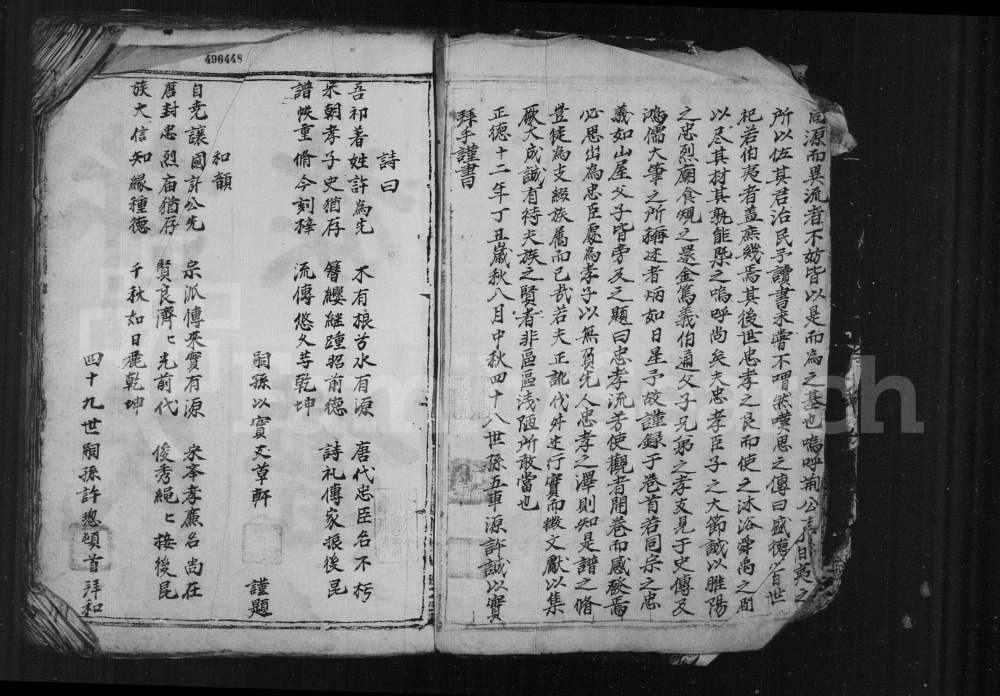 同源而異流者不妨皆以是而為之基也嗚呼荊公有曰夷之
所以佐其君治民予讀書來嘗不喟然嘆思之傳曰盛德百世
祀若伯夷者蓋庶幾焉其後世忠孝之良而使之沐浴舜禹之間
以尽其材其孰能槩之嗚呼尚矣夫忠孝臣子之大節誠以睢陽
之忠烈廟食規之還金篤義伯通父子兄弟之孝友見于史傳及
鴻儒大筆之所稱述者炳如日星予故謹録于卷首若同宗之忠
義如山屋父子皆旁及之題曰忠孝流芳使觀者開卷而感發焉
必思出為忠臣處為孝子以無負先人忠孝之澤則知是譜之脩
豈徒為支綴族属而已哉若夫正訛代舛史行實而徵文獻以集
厥大成誠有待夫族之賢者非區區浅陋所敢當也
正德十二年丁丑歲秋八月中秋四十八世孫五車源許誠以實
拜手謹書
496448
詩曰
吾祁著姓許為先 不有根苗水有源 唐代忠臣名不朽
宋朝孝子史猶存 簪纓継踵昭前德 詩礼傳家振後昆
譜帙重脩今刻梓 流傳悠久等乾坤
嗣孫以實友草軒 謹題
和韻
自堯讓國計公先 宗派傳來實有源 宋奉孝廉名尚在
唐封忠烈庙猶存 賢良濟ヒ光前代 俊秀繩ヒ接後昆
族大信知緣種德 千秋如日麗乾坤
四十九世嗣孫許璁頓首拜和
FamilySearch